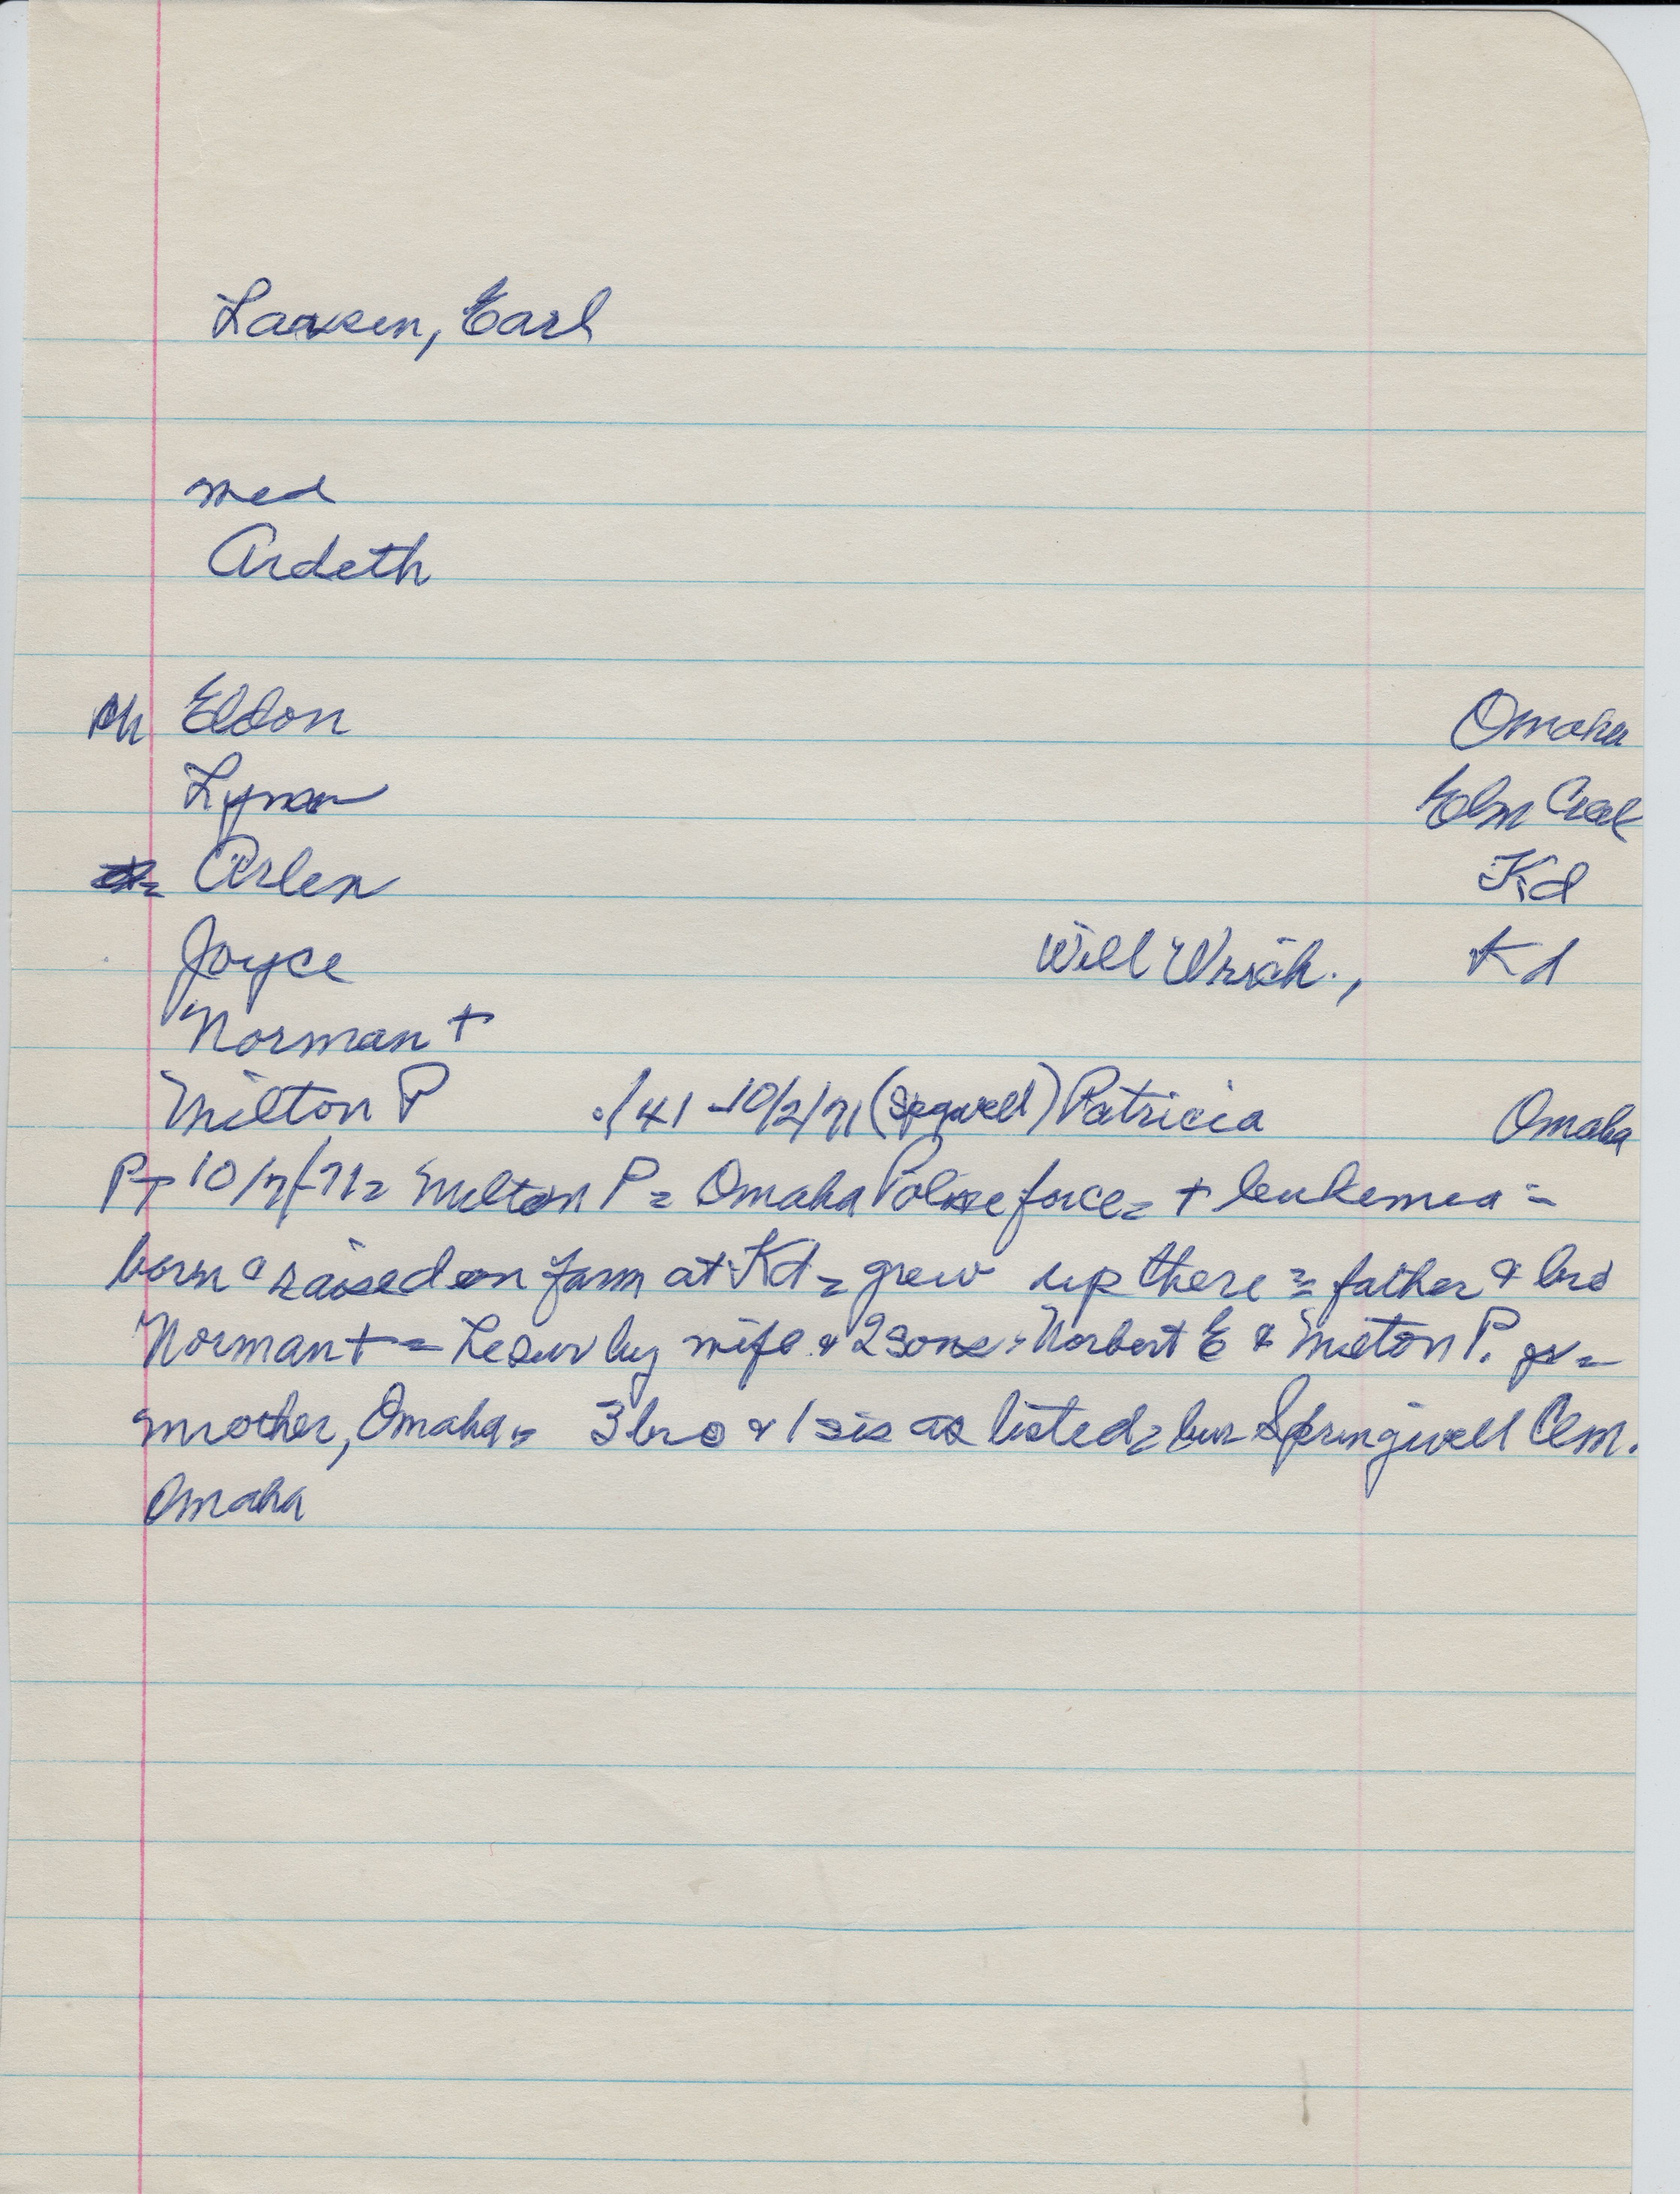 Larsen, Earl
med
Ardeth
ch Eldon Omaha
Lyman Elm Creek
Arlen Kd
Joyce Will Urich., Kd
Norman +
Milton P ./41-10/2/71 (Spgwell) Patricia Omaha
10/7/71= Milton P= Omaha Police force= + leukemia=
born & raised on farm at Kd= grew up there= father & bro
Norman + = Le sur by wife & 2 sons, Norbert E & Milton P. jr=
mother, Omaha= 3 bro & 1 sis as listed= bur Springwell Cem.
Omaha